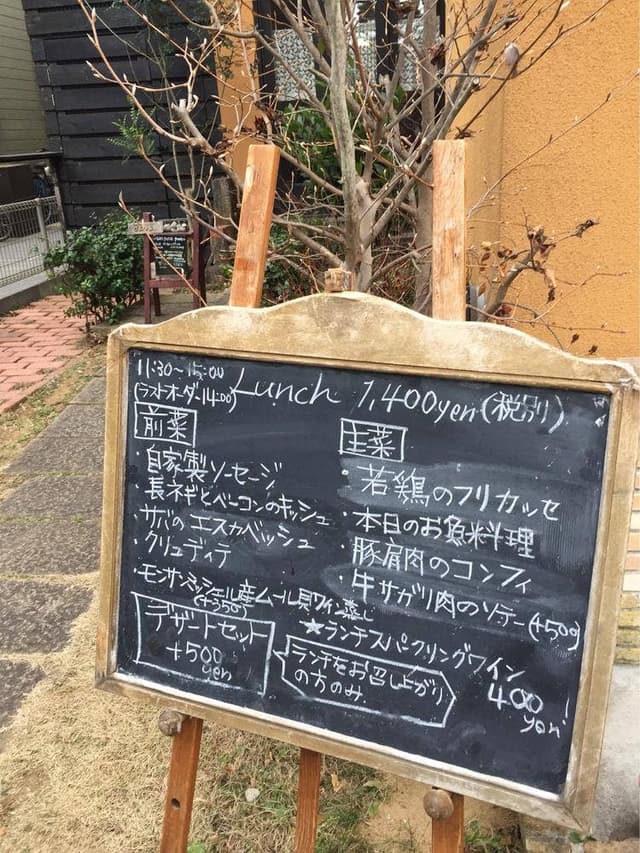 11:30〜15:00
(ラストオーダー14:00)
Lunch 1,400yen(税別)
前菜
・自家製ソーセージ
・長ネギとベーコンのキッシュ
・サバのエスカベッシュ
・クリュディテ
・モンサンミッシェル産ムール貝ワイン蒸し
(+350)
主菜
・若鶏のフリカッセ
・本日のお魚料理
・豚肩肉のコンフィ
・牛サガリ肉のソテー(+500)
デザートセット
+500
yen
ランチをお召し上がり
の方のみ
★ランチスパークリングワイン
400
yen!